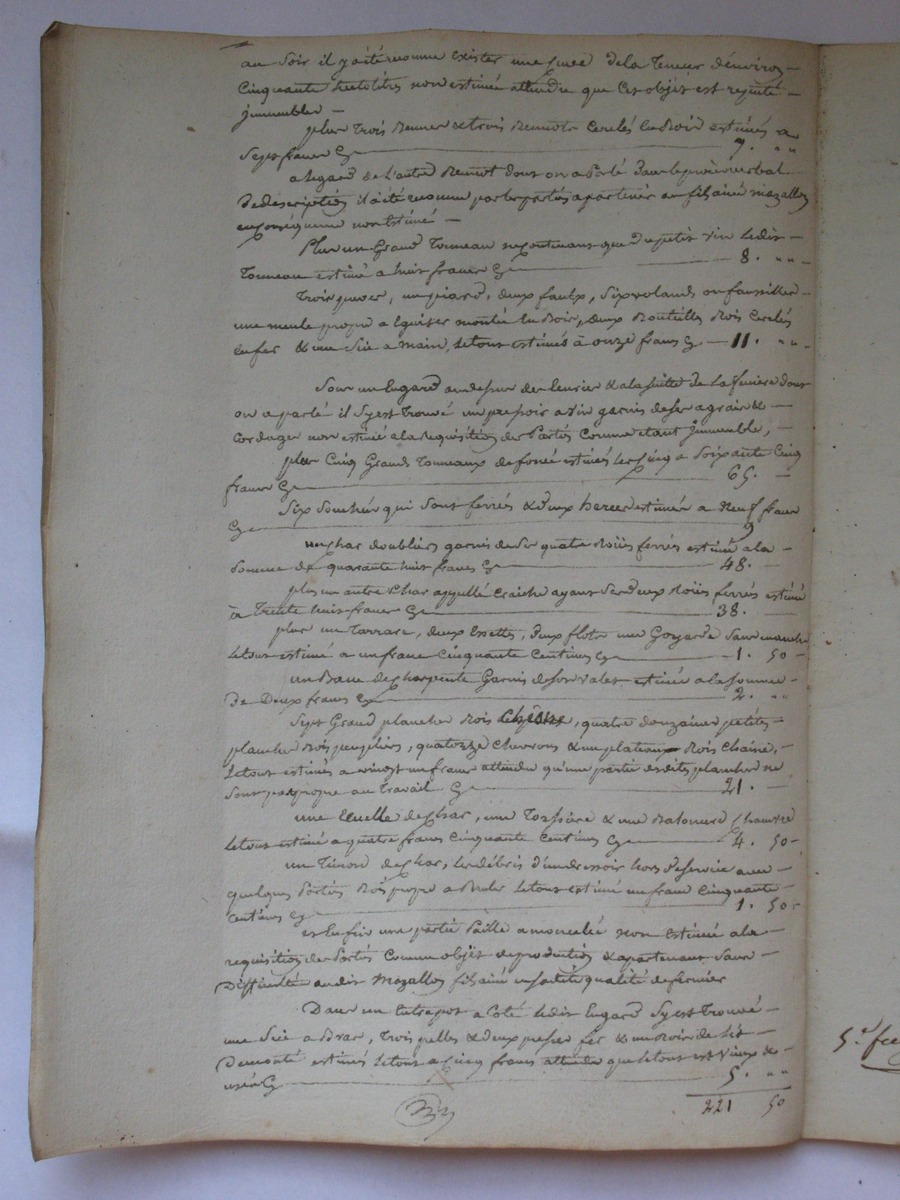 au Soir il y a été reconnue Exister une Cuvee de la Teneur d'environ
Cinquante hectolitres non estimée attendu que Cet objet est réputé
jmmeuble —
plus Trois Bennes & trois Bennots Cerclés En Bois estimés a
Sept francs — 7. " "
a legard de L'autre Bennot dont on a Parlé dans le procès verbal
De description il a été reconnu par les parties apartenir au fils ainé Mozallon
en conséquence non Estimé —
Plus un Grand Tonneau ne contenant que du petit vin Ledit
Tonneau estimé a huit francs — 8. " "
Trois , un piard, deux faulx, Six volands ou faucilles
une meule propre a Eguiser montée En Bois, deux Bouteilles Bois Cerclés
En fer & une Sie a Main, Le tout estimés à onze francs — 11. " "
Sous un Engard au dessus des Ecuries & a la suitte de La feniere dont
on a parlé il S'y est Trouvé un pressoir a vin garnis de Ses agraits &
Cordages non estimé a la requisition des Parties Comme etant jmmeuble,
plus Cinq Grands Tonneaux de foncé estimés les Cinq a Soixante Cinq
francs — 65. —
Six qui Sont ferrés & deux herces estimées a Neuf francs
— 9
un Char doubliers garnis de Ses quatre Roües ferrés estimé a la
Somme de quarante huit francs — 48. —
plus un autre Char appellé Craiche ayant Ses deux Roües ferrés estimé
à Trente huit francs — 38. —
plus un Tarrare, deux Essettes, deux flots une Goyarde Sans manche
Le tout estimé a un franc Cinquante Centimes — 1. 50 —
un Banc de Charpente Garnis de son valet estimée a la Somme
de Deux francs — 2. " "
Sept Grand plancher Bois Chêne, quatre douzaines petites
plancher Bois peupliers, quatorze Chevrons & un plateau Bois Chaine,
Le tout estimés a vingt un francs attendu qu'une partie desdits plancher ne
Sont pas propre au Travail — 21. —
une Ecuelle de Char, une Torsiere & une
Le tout estimé a quatre francs Cinquante Centimes — 4. 50 —
un Timon de Char, les débris d'un dressoir hors de service avec
quelques Sorties Bois propre a Bruler Le tout estimé un franc Cinquante
Centimes — 1. 50 —
et Enfin une partie Paille amoncelée non Estimée a la
requisition des Parties Comme objet de production & apartenant Sans
Difficultée audit Mozallon fils ainé en sadite qualité de fermier
Dans un Entrepot a Coté ledit Engard S'y est Trouvé
une Sie a Bras, Trois pelles & deux fer & un Bois de lit
Demonté estimés Le tout a Cinq francs attendu que le tout est Vieux &
usée — 5. " "
221 50